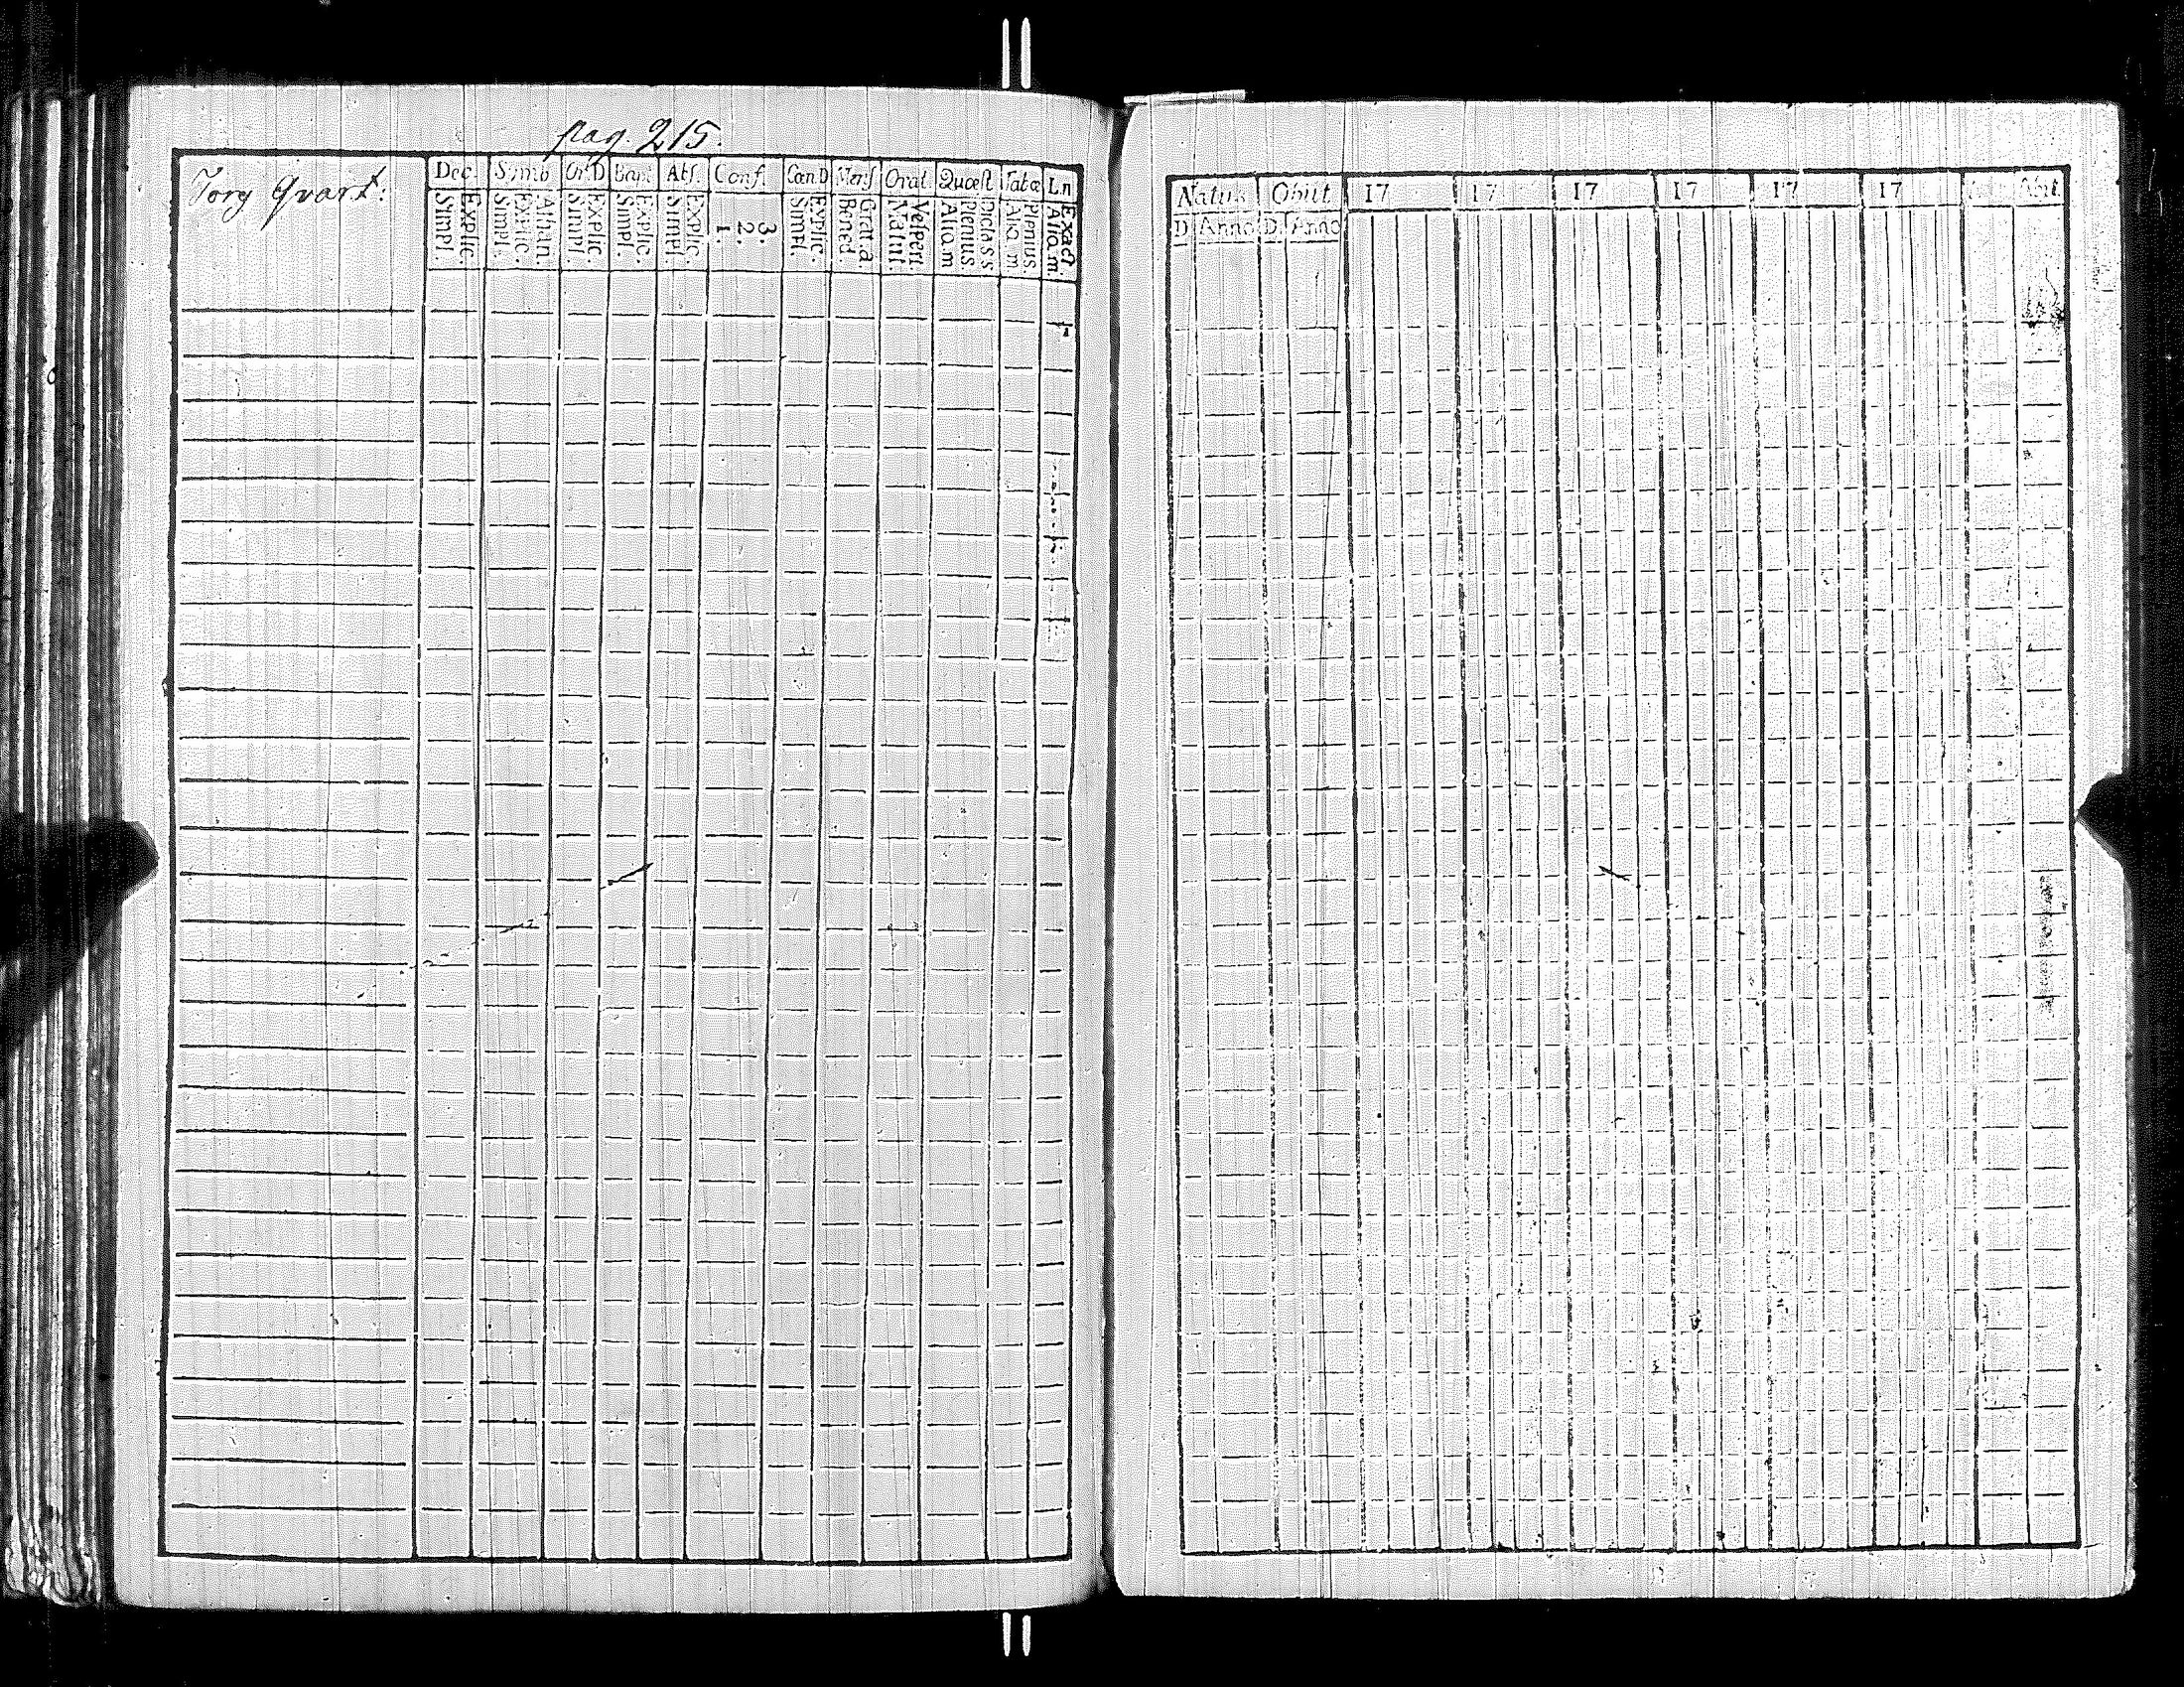 pag. 215.
Torg Qvart:
Dec. Symb Or.D Bapt Abs. Conf. Cœn D Vers Orat. Quæst Tabœ Ln
Simpl. Explic. Simpl. Explic. Athan. Simpl. Explic. Simpl. Explic. Simpl. Explic. 1. 2. 3. Simpl. Explic. Bened. Grat. a. Matut. Vesperi. Aliq. m Plenius Dic. a s s Aliq. m. Plenius. Aliq. m. Exact.
Natus Obiit 17 17 17 17 17 17 Abit.
D Anno D. Anno